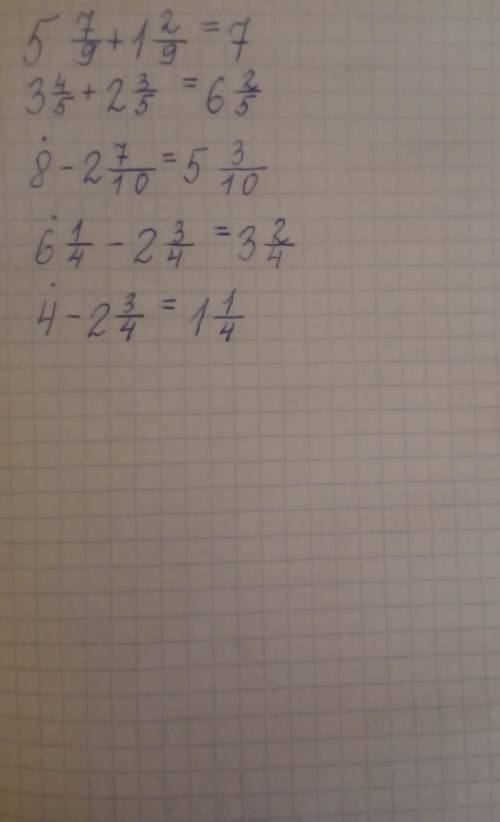 5 7/9 + 1 2/9 = 7
3 4/5 + 2 3/5 = 6 2/5
8 - 2 7/10 = 5 3/10
6 1/4 - 2 3/4 = 3 2/4
4 - 2 3/4 = 1 1/4